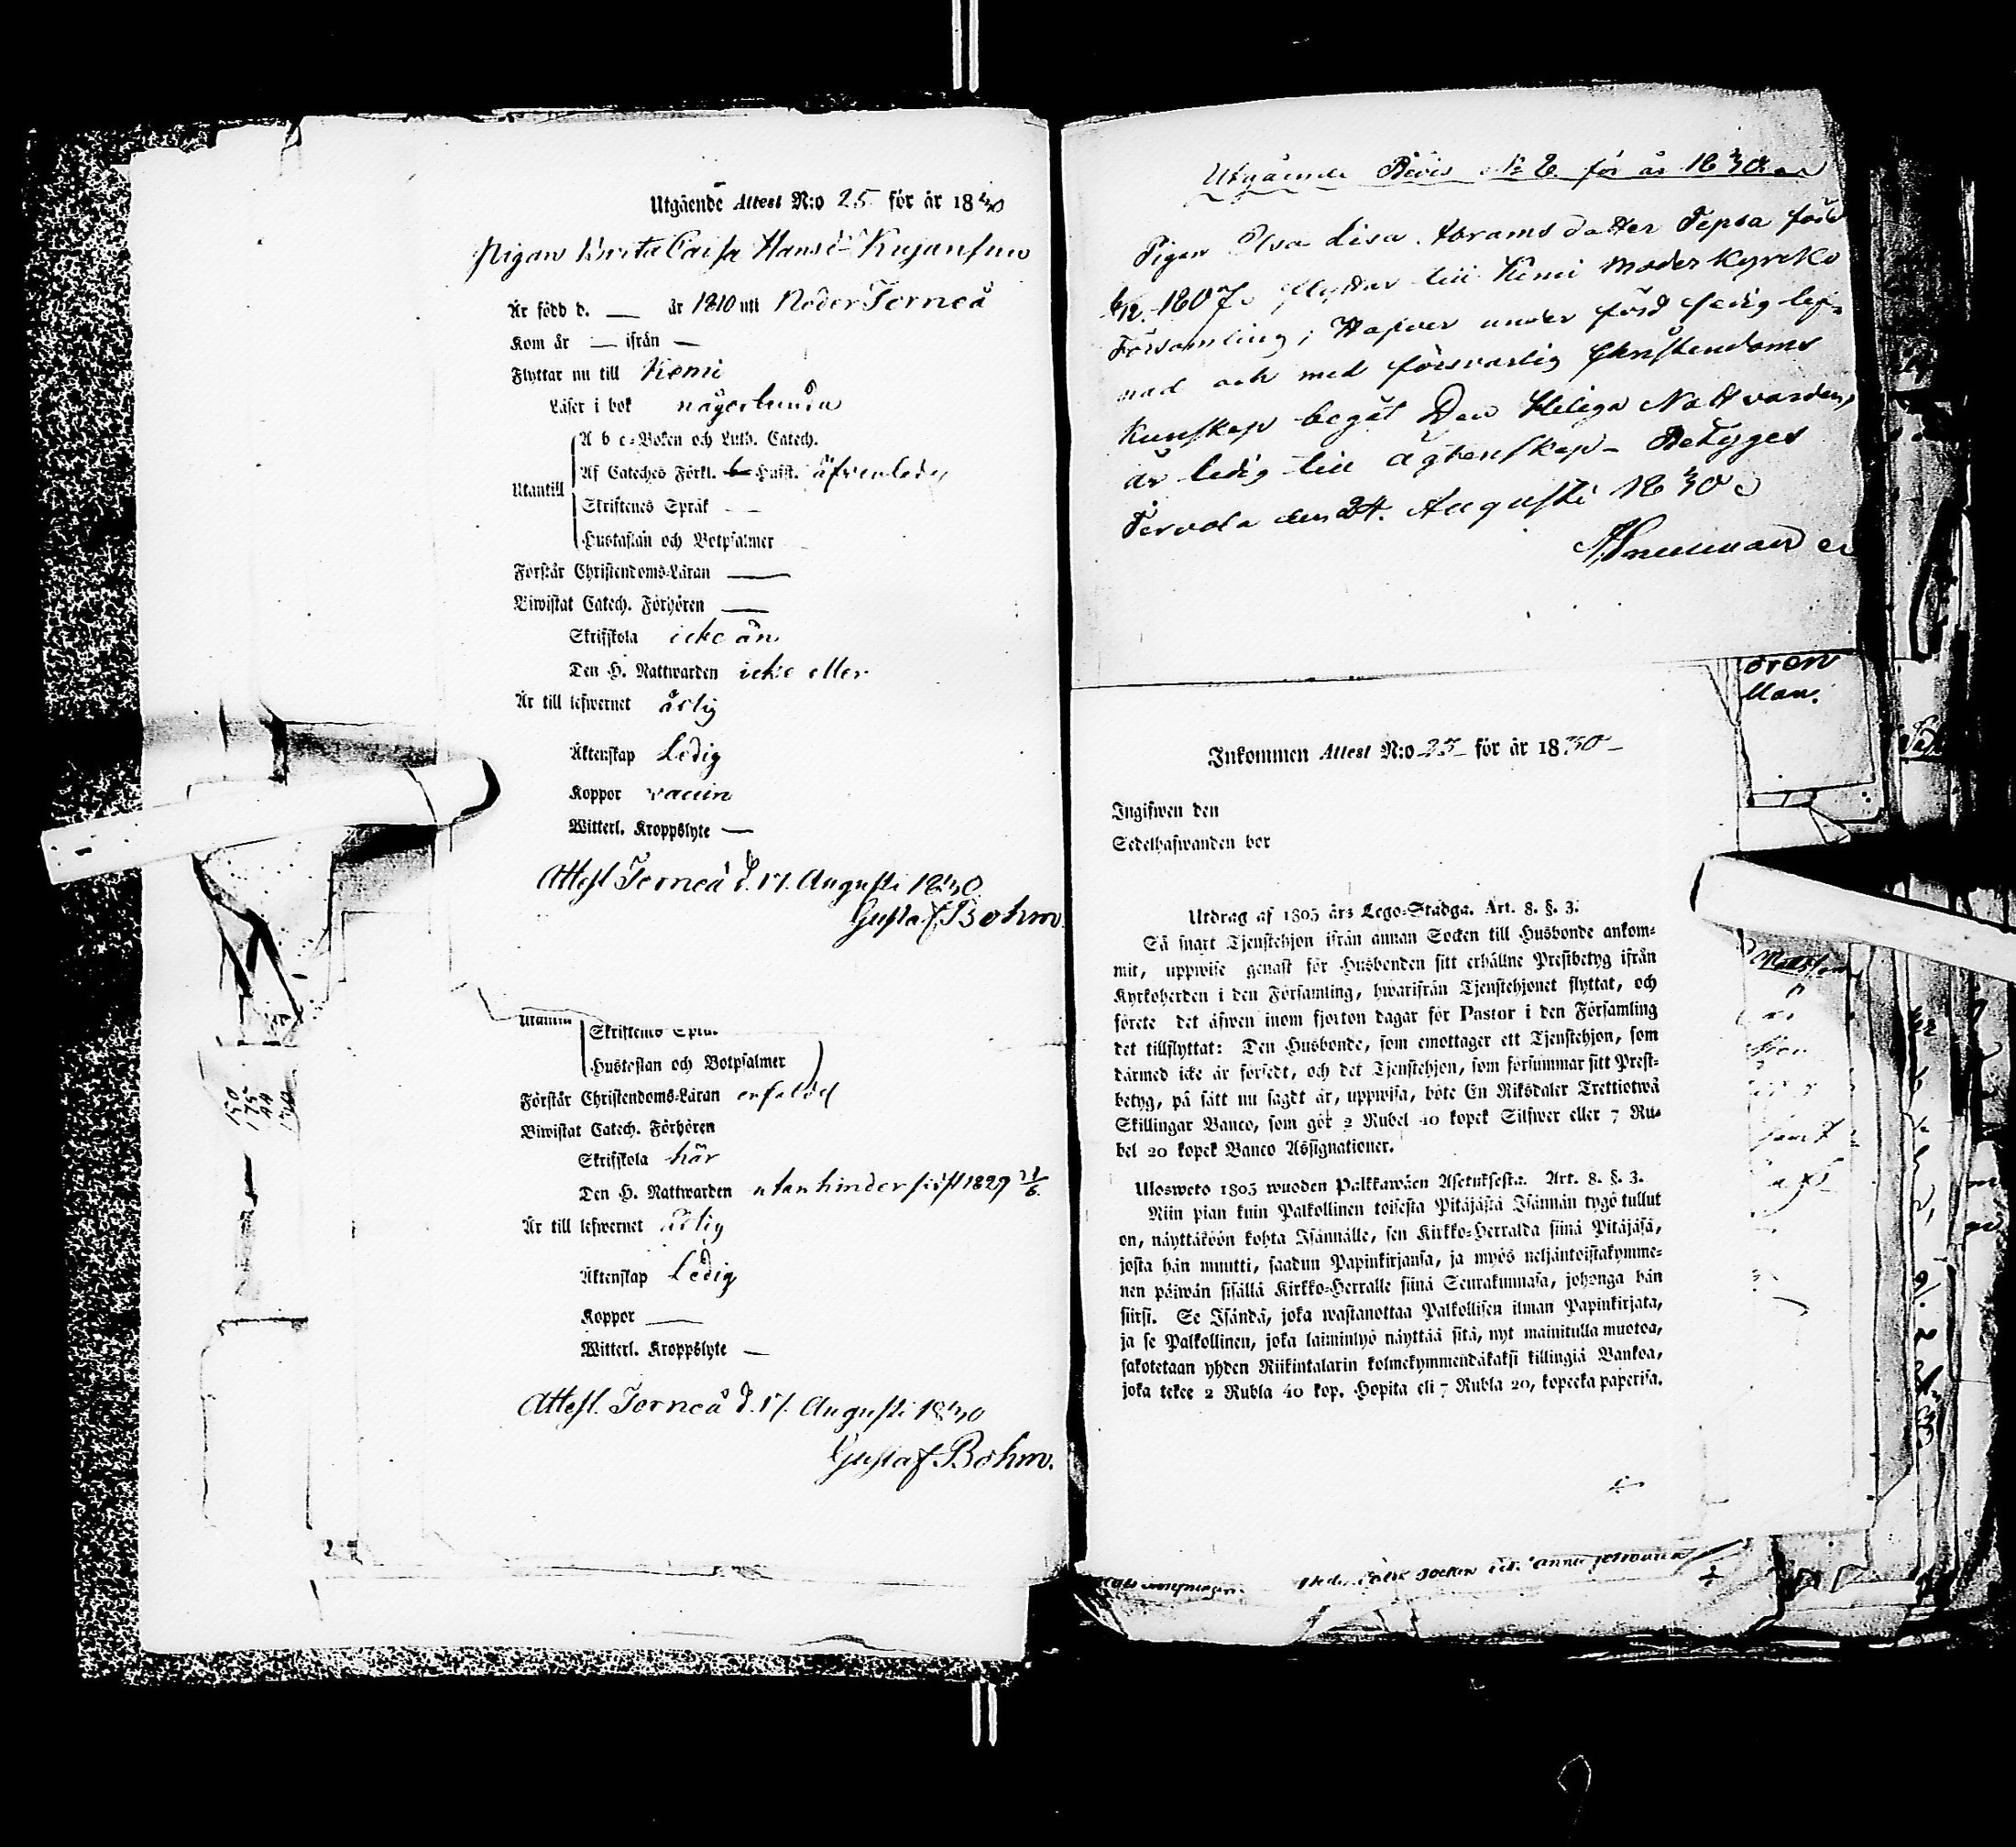 Utgående Attest N:o 25 för år 1830
Pigan Brita Caisa Hansd: Kujansuu
Är född d. — år 1810 uti Neder Torneå
Kom år — ifrån —
Flyttar nu till Kemi
Läser i bok någorlunda
Utantill
A b c-Boken och Luth. Catech.
Af Cateches Förkl. Husst. äfvenledes
Skriftenes Språk — —
Hustaflan och Botpsalmer
Förstår Christendoms-Läran —
Biwistat Catech. Förhören —
Skrifskola icke än
Den H. Nattwarden icke eller
Är till lefwernet ärlig
Äktenskap Ledig
Koppor vaccin
Witterl. Kroppslyte —
Attest. Torneå d. 17. Augusti 1830.
Gustaf Bohm
Utantill
Skriftenes Språk
Hustaflan och Botpsalmer
Förstår Christendoms-Läran
Biwistat Catech. Förhören
Skrifskola här
Den H. Nattwarden utan hinder sist 1829 21/6.
Är till lefwernet ärlig
Äktenskap Ledig
Koppor —
Witterl. Kroppslyte —
Attest. Torneå d. 17. Augusti 1830
Gustaf Bohm.
Utgående Bevis N: 2 för år 1830
Pigan Elsa Lisa Abrams datter Tepsa född
6/12. 1807. flyttar till Kemi Moder Kyrko
Församling; Hafver under förd sedig lef-
nad och med försvarlig Christendoms
Kunskap begåt Den Heliga Nattvarden,
är ledig till ägtenskap. Betygges
Tervola den 24. Augusti 1830
Inkommen Attest N:o 25 för år 1830
Ingifwen den
Sedelhafwanden bor
Utdrag af 1805 års Lego-Stadga. Art. 8. §. 3.
Så snart Tjenstehjon ifrån annan Socken till Husbonde ankom-
mit, uppwise genast för Husbonden sitt erhållne Prestbetyg ifrån
Kyrkoherden i den Församling, hwarifrån Tjenstehjonet flyttat, och
förete det äfwen inom fjorton dagar för Pastor i den Församling
det tillflyttat: Den Husbonde, som emottager ett Tjenstehjon, som
därmed icke är försedt, och det Tjenstehjon, som försummar sitt Prest-
betyg, på sätt nu sagdt är, uppwisa, böte En Riksdaler Trettiotwå
Skillingar Banco, som gör 2 Rubel 40 kopek Silfwer eller 7 Ru-
bel 20 kopek Banco Assignationer.
Ulosweto 1805 wuoden Palkkawäen Asetuksesta. Art. 8. §. 3.
Niin pian kuin Palkollinen toisesta Pitäjästä Isännän tygö tullut
on, näyttäköön kohta Isännälle, sen Kirkko-Herralda siinä Pitäjäsä,
josta hän muutti, saadun Papinkirjansa, ja myös neljäntoistakymme-
nen päiwän sisällä Kirkko-Herralle siinä Seurakunnasa, johonga hän
siirsi. Se Isändä, joka wastanottaa Palkollisen ilman Papinkirjata,
ja se Palkollinen, joka laiminlyö näyttää sitä, nyt mainitulla muotoa,
sakotetaan yhden Riikintalarin kolmekymmendäkaksi killingiä Bankoa,
joka tekee 2 Rubla 40 kop. Hopita eli 7 Rubla 20, kopecka paperisa.
150
175
44